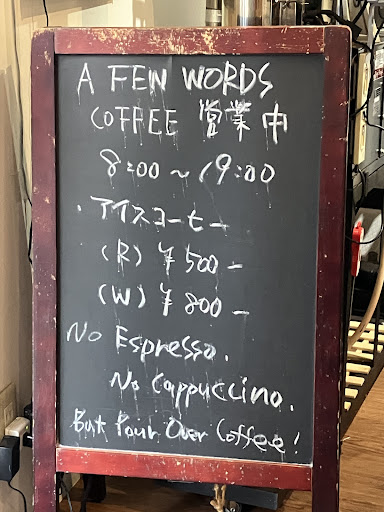 A FEW WORDS
COFFEE 営業中
8:00~19:00
・アイスコーヒー
(R) ¥500-
(W) ¥800-
No Espresso.
No Cappuccino.
But Pour Over Coffee!